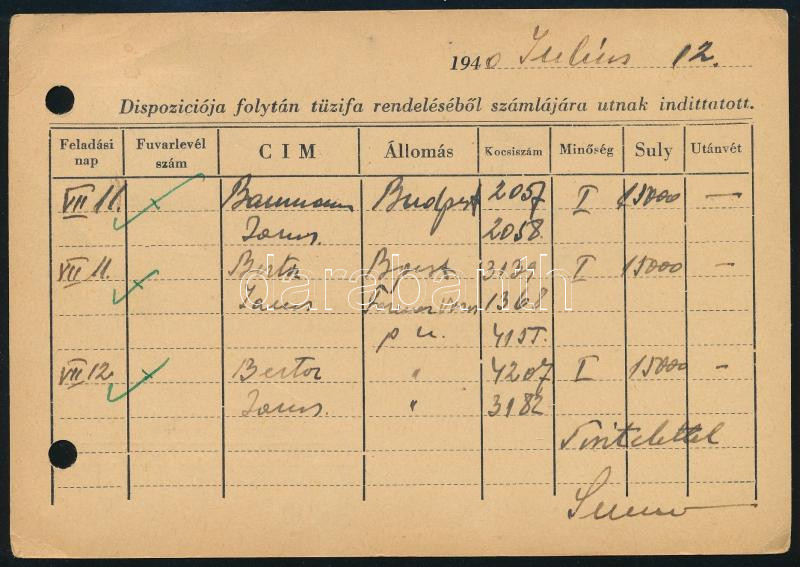 1940 Julius 12.
Dispoziciója folytán tüzifa rendeléséből számlájára utnak indittatott.
Feladási nap Fuvarlevél szám CIM Állomás Kocsiszám Minőség Suly Utánvét
VII 11. Baumann Budapest 2057 I 15000 —
Janus. 2058.
VII 11. Bertor Bpest 3139 I 15000 —
Janus 1368
p u. 4155.
VII 12. Bertor " 4207 I 15000 —
Janus. " 3182
Tisztelettel
darabanth